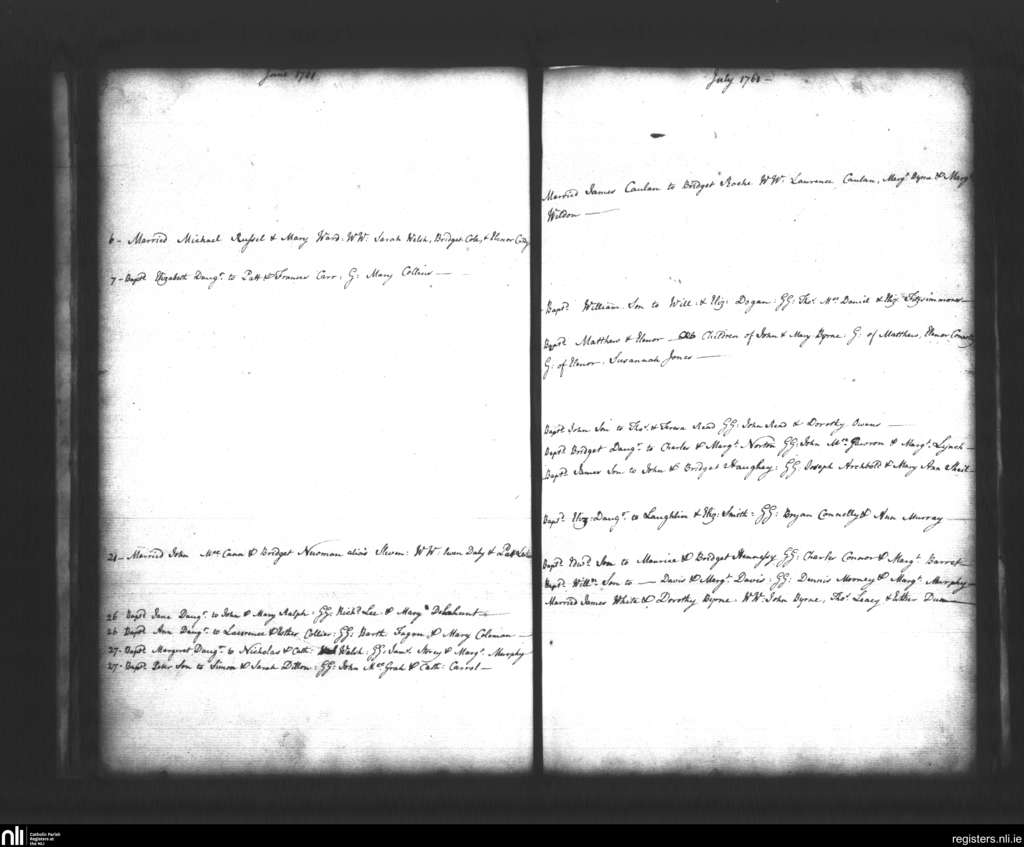 June 1761
6 - Married Michael Russel & Mary Ward: WW. Sarah Welsh, Bridget Cole, & Elenor
7 - Bapd. Elizabeth Daugr. to Patt & Frances Carr, G: Mary Collier —
21 - Married John McCann & Bridget Newman alias Steven: WW: Owen Daly & Patt
26 Bapd. Jane Daugr. to John & Mary Ralph: GG: Richd. Lee & Mary Delahunt —
26 Bapd. Ann Daugr. to Lawrence & Esther Collier: GG: Barth Fagan, & Mary Coleman —
27- Bapd. Margaret Daugr. to Nicholas & Cath: Walsh, GG: Saml. & Margt. Murphy
27- Bapd. Peter Son to Simon & Sarah Ditton: GG: John McGrah & Cath: Carrol —
July 1761 —
Married James Caulan to Bridget Roche WW. Laurence Caulan, Margt. Byrne & Margt.
Weldon —
Bapd. William Son to Will: & Eliz: Dogan: GG: Thos. McDaniel & Eliz Fitzsimmons —
Bapd. Matthew & Elenor — Children of John & Mary Byrne. G: of Matthew, Elenor
G: of Elenor. Susannah Jones —
Bapd. John Son to Thos. & Read GG: John Read & Dorothy Owens —
Bapd. Bridget Daugr. to Charles & Margt. Norton GG: John & Margt. Lynch —
Bapd. James Son to John & Bridget Haughey: GG: Joseph Archbold & Mary Ann
Bapd. Eliz: Daugr. to Laughlin & Eliz: Smith: GG: Bryan Connolly & Ann Murray —
Bapd. Edwd. Son to Maurice & Bridget Hennessy GG: Charles Connor & Margt. Barret
Bapd. Willm. Son to — Davis & Margt. Davis: GG: Dennis Morney & Margt. Murphy
Married James White & Dorothy Byrne. WW: John Byrne, Thos. Leacy & Esther
nli
Catholic Parish
Registers at
the NLI
registers.nli.ie